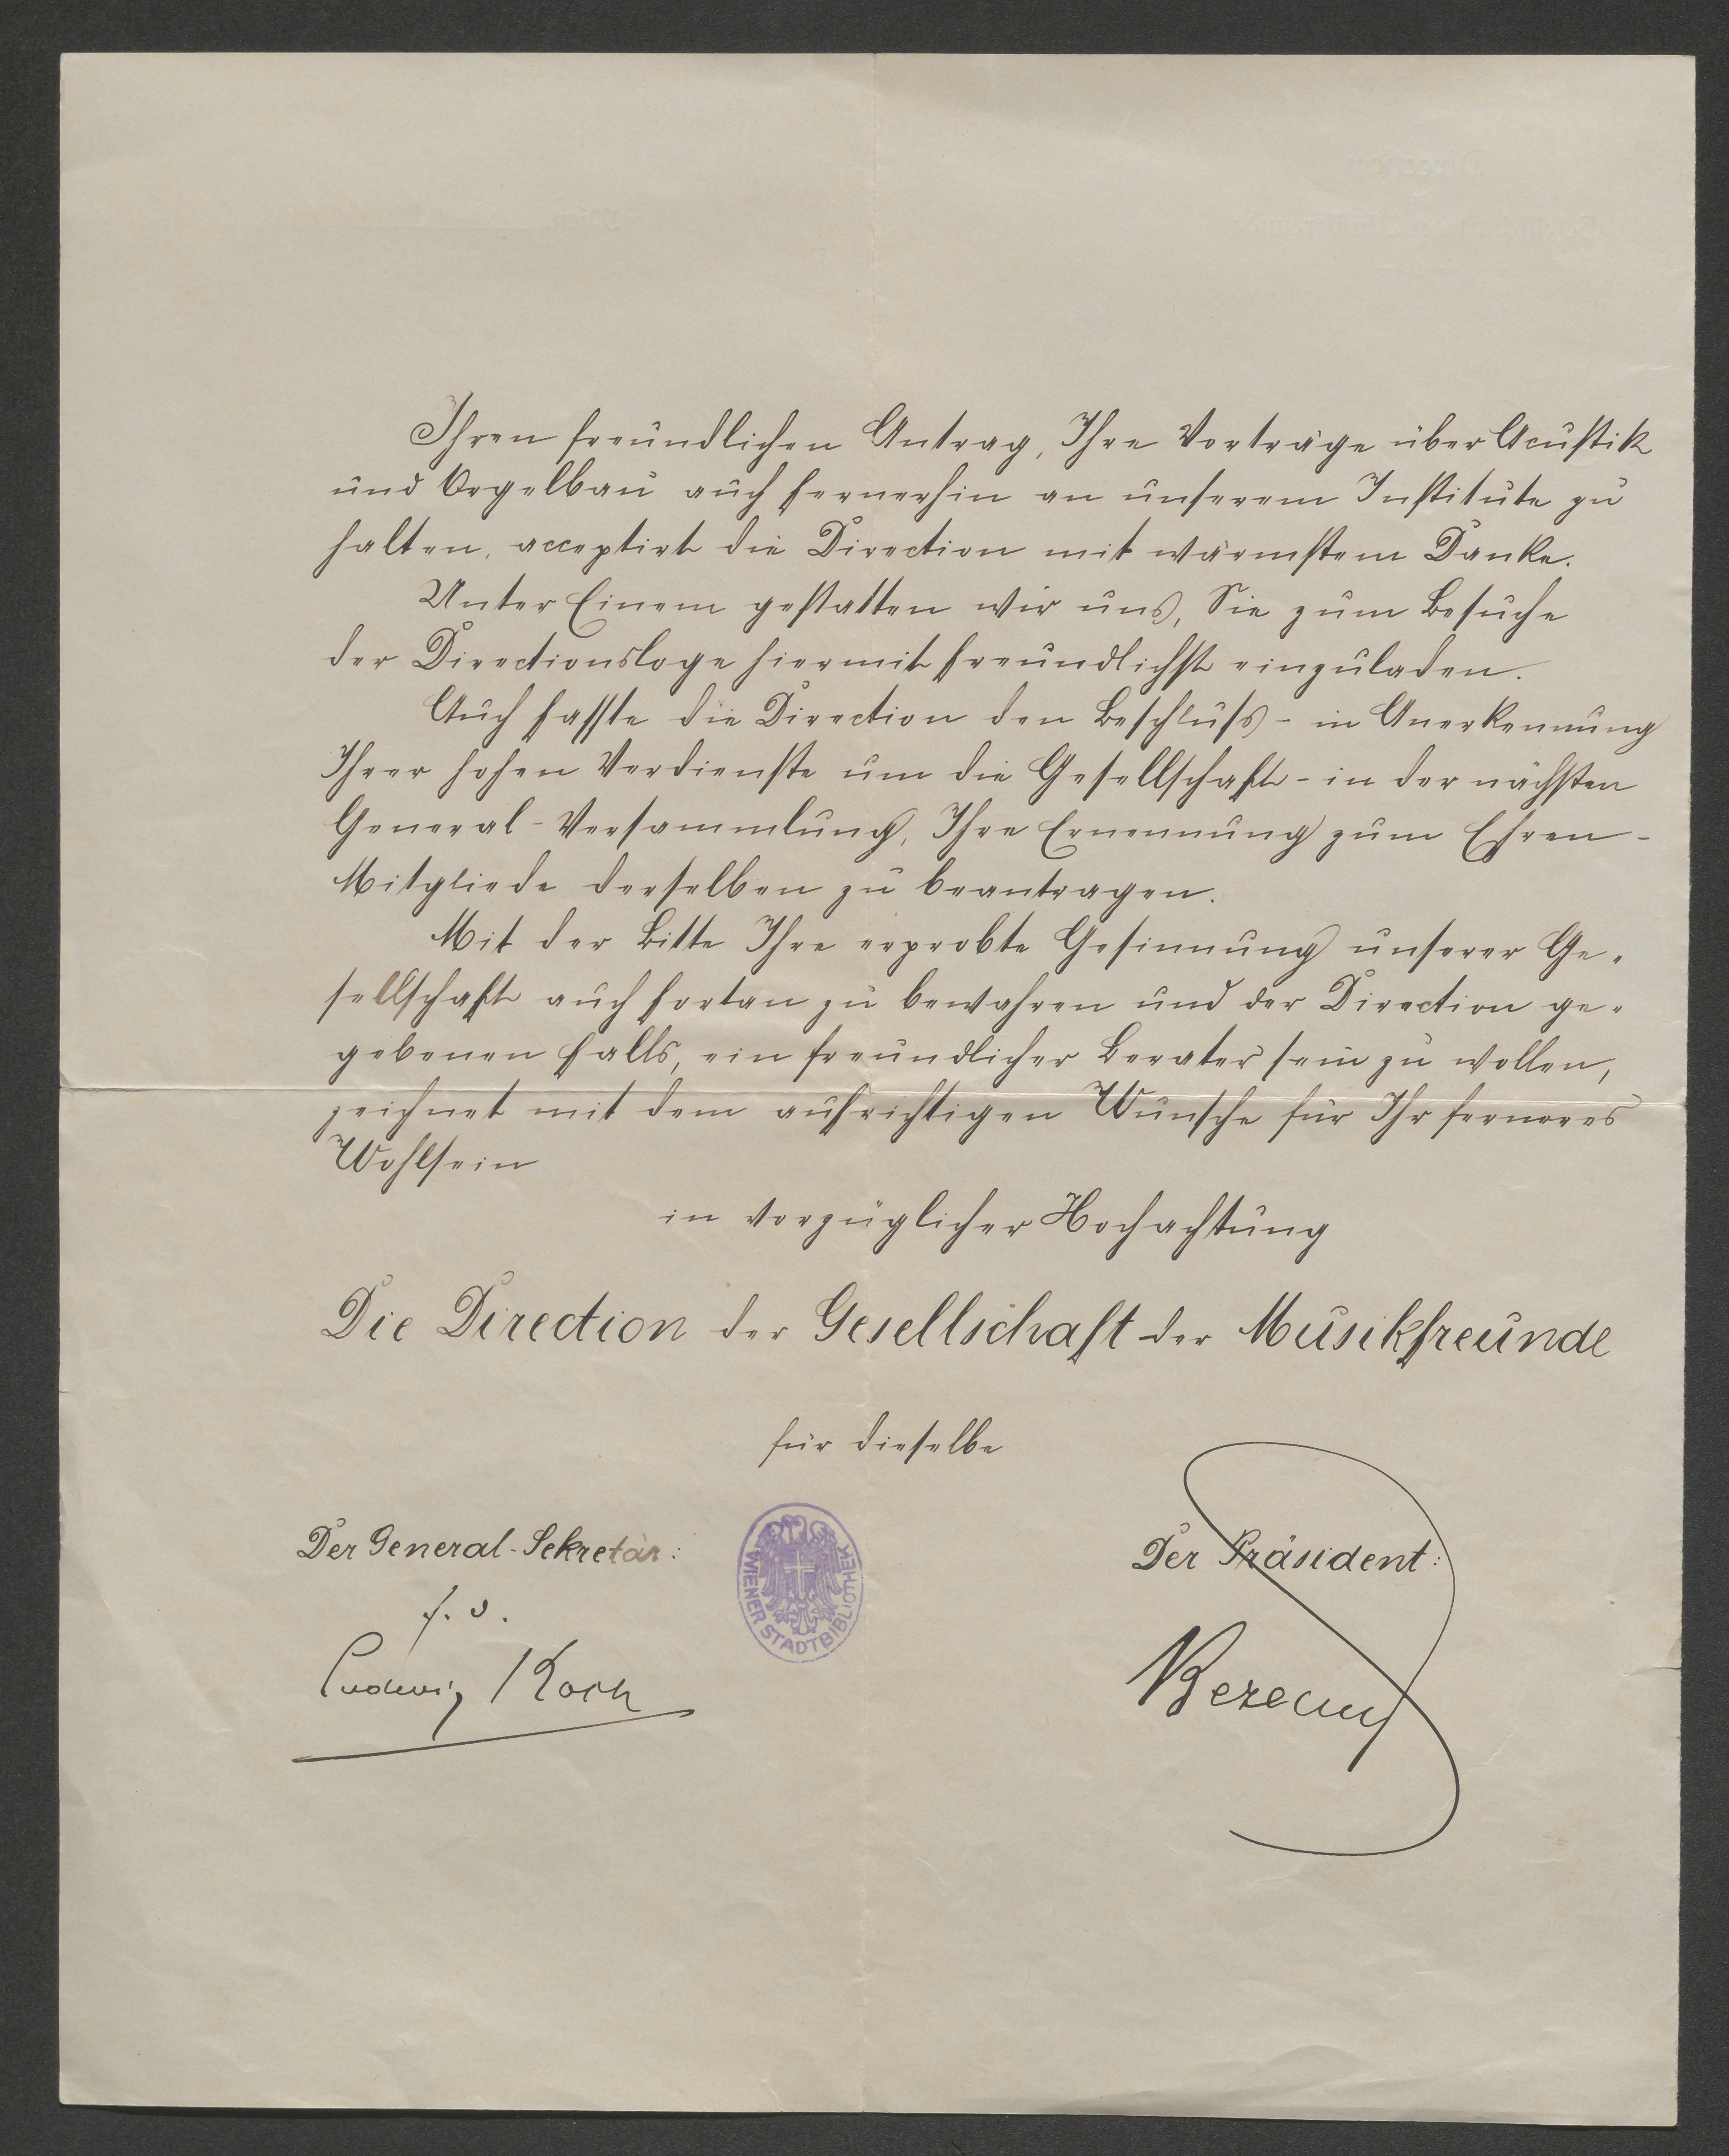 Ihren freundlichen Antrag, Ihre Vorträge über Acustik
und Orgelbau auch fernerhin an unserem Institute zu
halten, acceptirt die Direction mit wärmstem Danke.
Unter Einem gestatten wir uns, Sie zum Besuche
der Directionsloge hiermit freundlichst einzuladen.
Auch fasste die Direction den Beschluss - in Anerkennung
Ihrer hohen Verdienste um die Gesellschaft - in der nächsten
General-Versammlung, Ihre Ernennung zum Ehren-
Mitgliede derselben zu beantragen.
Mit der Bitte Ihre erprobte Gesinnung unserer Ge-
sellschaft auch fortan zu bewahren und der Direction ge-
gebenen Falls, ein freundlicher Berater sein zu wollen,
zeichnet mit dem aufrichtigen Wunsche für Ihr ferneres
Wohlsein
in vorzüglicher Hochachtung
Die Direction der Gesellschaft der Musikfreunde
für dieselbe
Der General-Sekretär:
Der Präsident:
Ludwig Koch
Bezecny
WIENER STADTBIBLIOTHEK